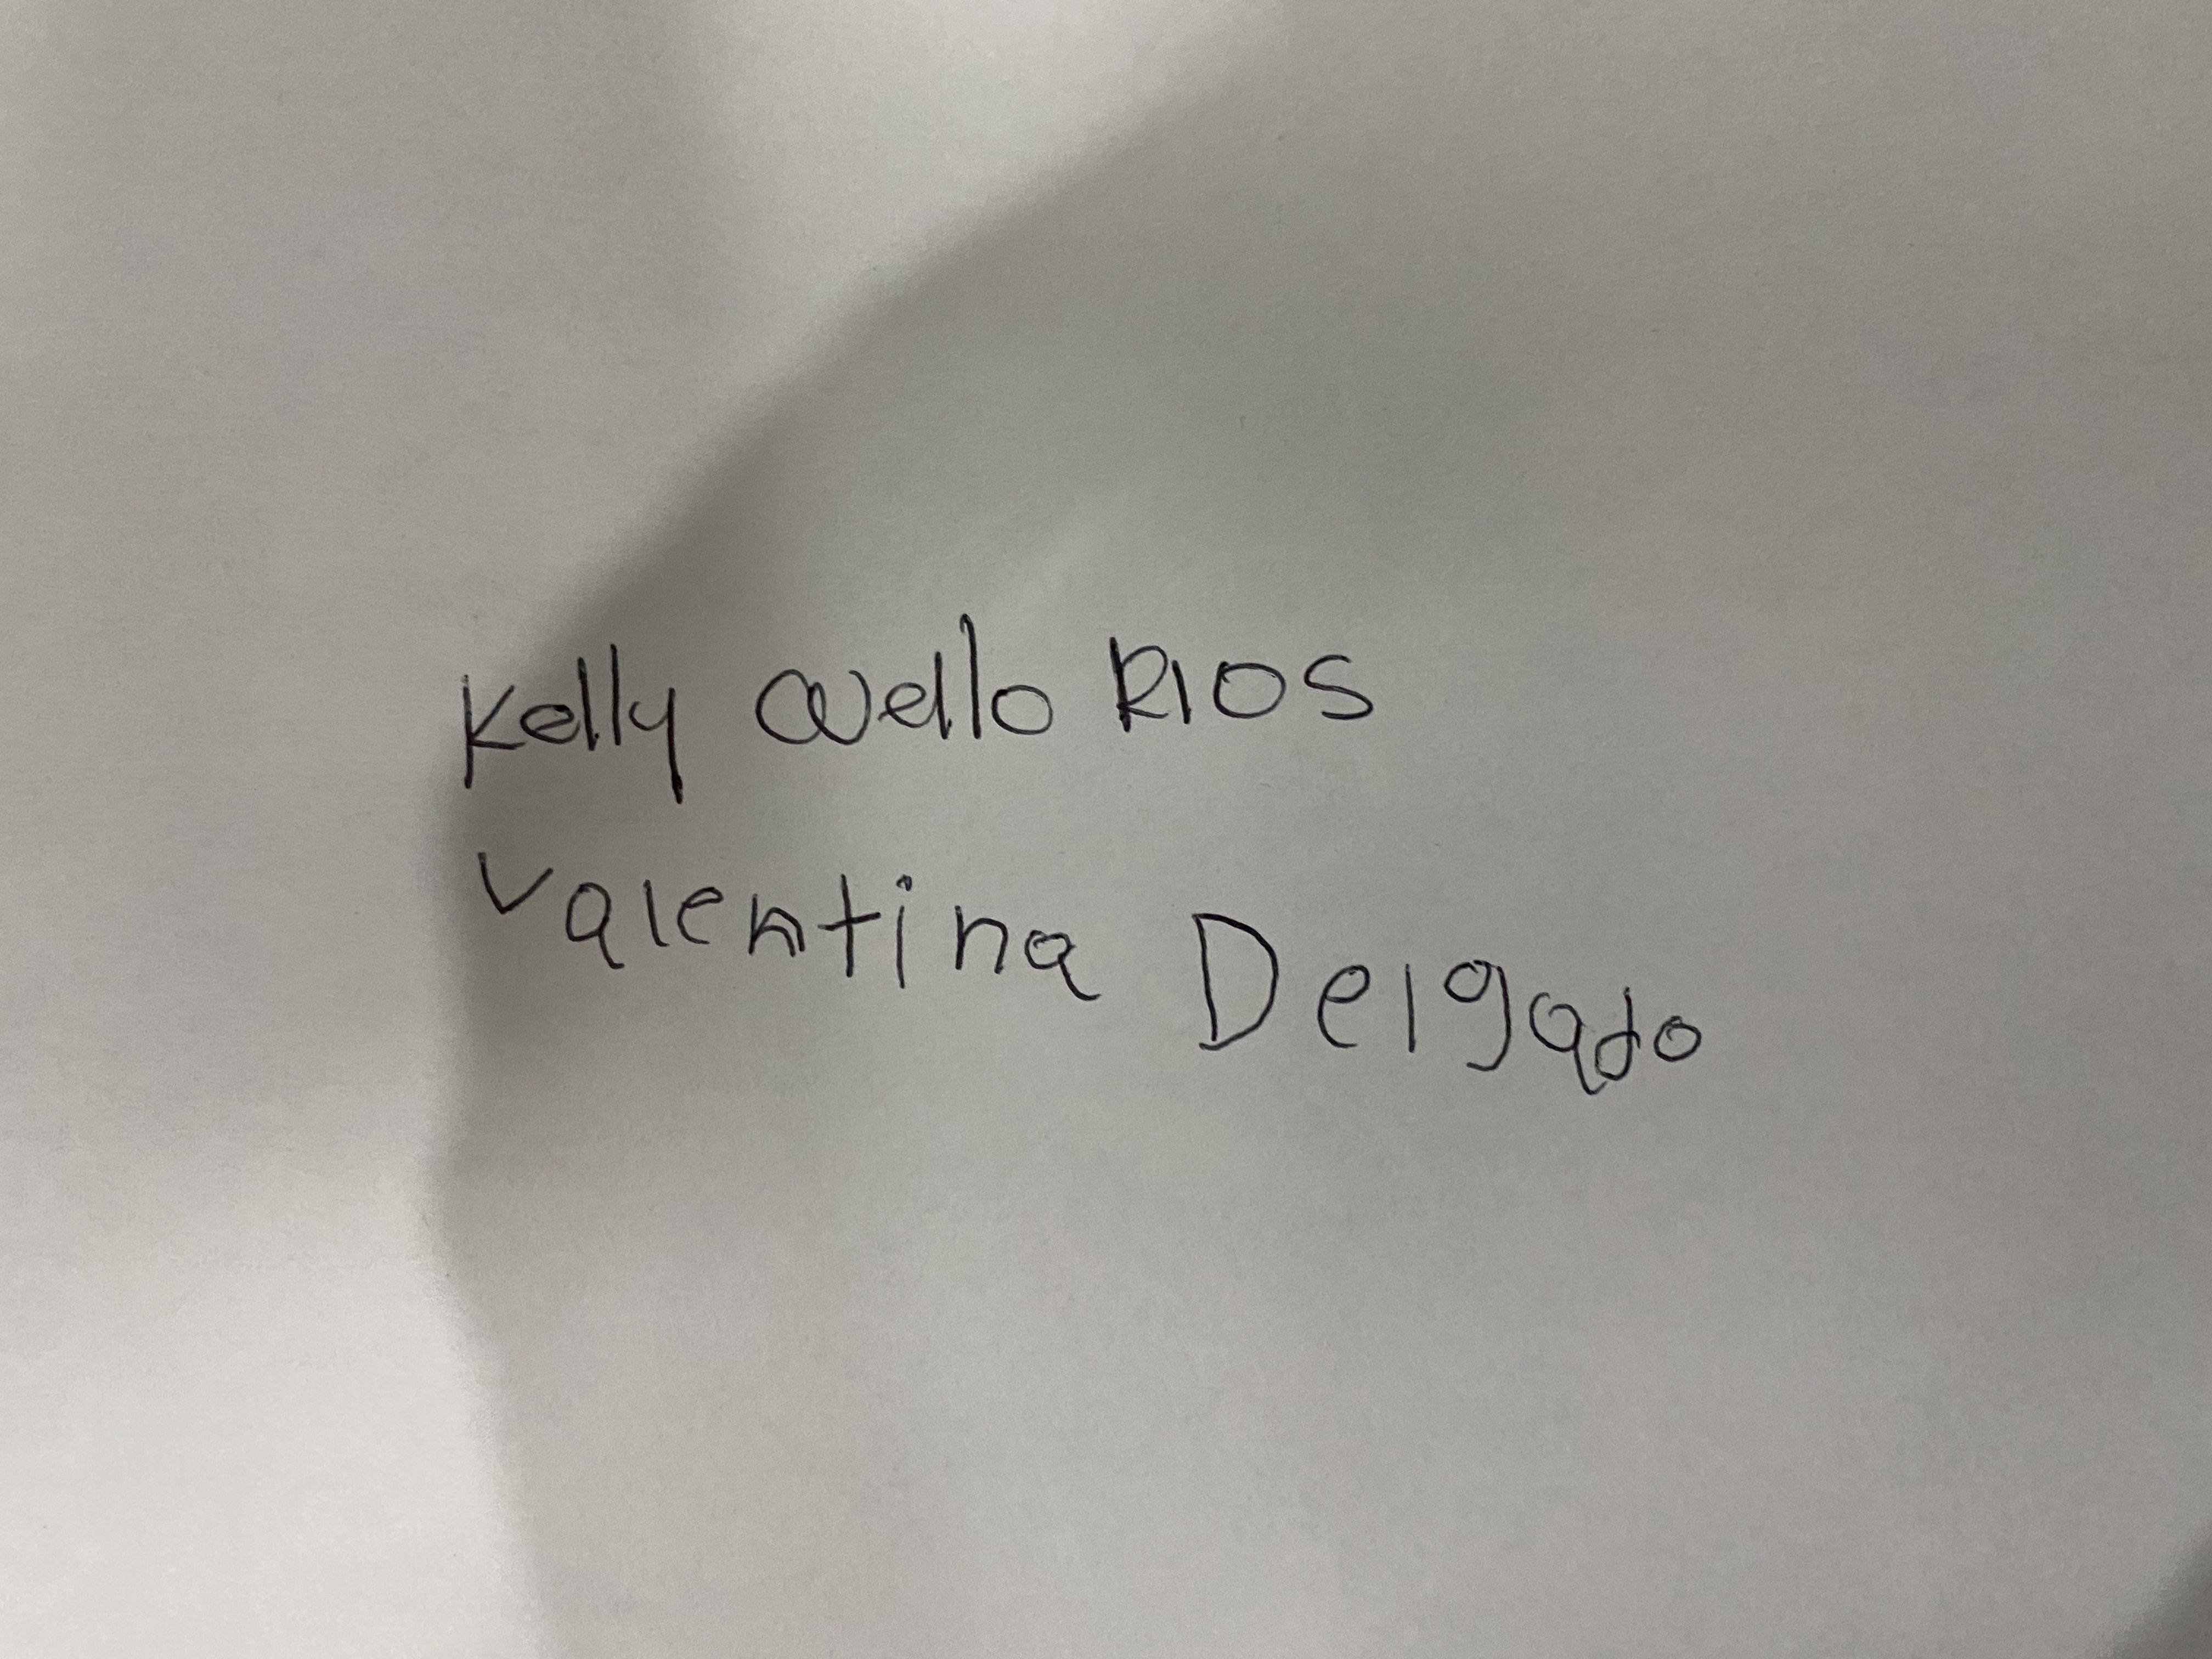 Kelly avello Rios
Valentina Delgado